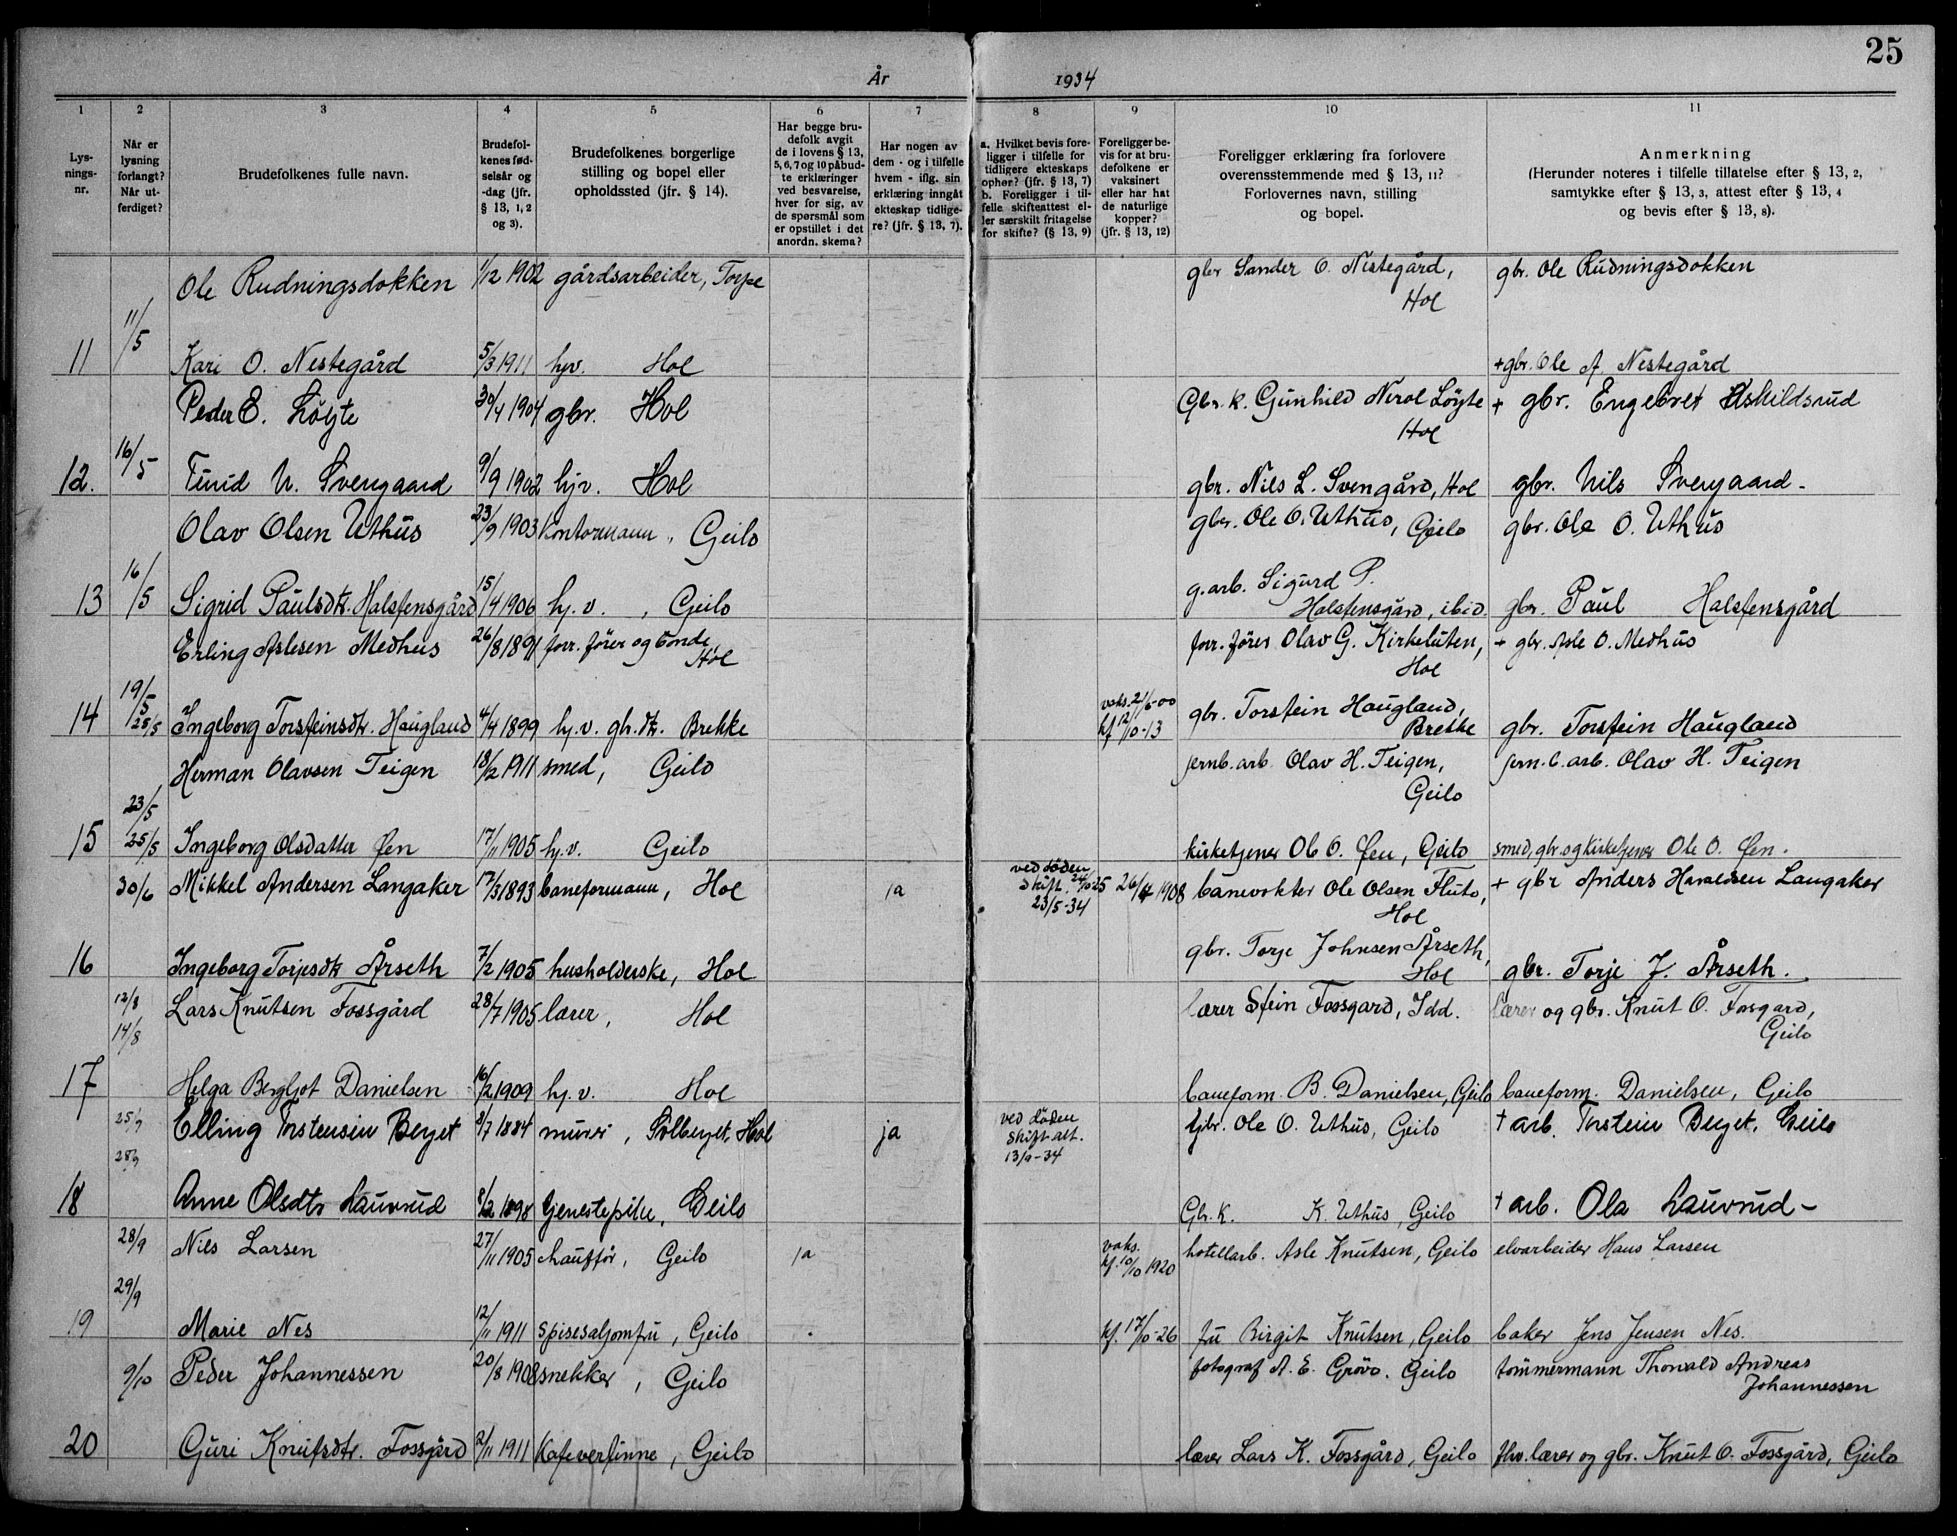 25
År 1934
1 2 3 4 5 6 7 8 9 10 11
Lys-
nings-
nr.
Når er
lysning
forlangt?
Når ut-
ferdiget?
Brudefolkenes fulle navn.
Brudefol-
kenes fød-
selsår og
-dag (jfr.
§ 13, 1, 2
og 3).
Brudefolkenes borgerlige
stilling og bopel eller
opholdssted (jfr. § 14).
Har begge bru-
defolk avgit
de i lovens § 13,
5, 6, 7 og 10 påbud-
te erklæringer
ved besvarelse,
hver for sig, av
de spørsmål som
er opstillet i det
anordn. skema?
Har nogen av
dem - og i tilfelle
hvem - iflg. sin
erklæring inngåt
ekteskap tidlige-
re? (jfr. § 13, 7).
a. Hvilket bevis fore-
ligger i tilfelle for
tidligere ekteskaps
ophør? (jfr. § 13, 7)
b. Foreligger i til-
felle skifteattest el-
ler særskilt fritagelse
for skifte? (§ 13, 9)
Foreligger be-
vis for at bru-
defolkene er
vaksinert
eller har hat
de naturlige
kopper?
(jfr. § 13, 12)
Foreligger erklæring fra forlovere
overensstemmende med § 13, 11?
Forlovernes navn, stilling
og bopel.
Anmerkning
(Herunder noteres i tilfelle tillatelse efter § 13, 2,
samtykke efter § 13, 3, attest efter § 13, 4
og bevis efter § 13, 8).
Ole Rudningsdokken 1/12 1902 gårdsarbeider, Torpe gbr Sander O. Nestegård, gbr. Ole Rudningsdokken
Hol
11/5
11 Kari O. Nestegård 5/3 1911 hjv. Hol +gbr. Ole A. Nestegård
Peder E. Løyte 30/4 1904 gbr. Hol Gbr. k. Gunhild Nirol Løyte + gbr. Engebret Eskildsrud
Hol
16/5
12. Turid N. Svengaard 9/9 1902 hjv. Hol gbr. Nils L. Svengård, Hol gbr. Nils Svengaard.
Olav Olsen Uthus 23/9 1903 kontormann, Geilo gbr. Ole O. Uthus, Geilo gbr. Ole O. Uthus
16/5 g.arb. Sigurd P.
13 Sigrid Paulsdtr. Halstensgård 15/4 1906 hj.v., Geilo Halstensgård, ibid. gbr. Paul Halstensgård
Erling Aslesen Medhus 26/8 1891 forr. fører og bonde forr. fører Olav G. Kirkeluten, + gbr. Asle O. Medhus
Hol Hol
19/5 vaks. 21/6-00
14 25/5 Ingeborg Torsteinsdtr. Haugland 4/4 1899 hj.v. gbr.dtr. Brekke kf 12/10-13 gbr. Torstein Haugland, Brekke gbr. Torstein Haugland
Herman Olavsen Teigen 18/2 1911 smed, Geilo jernb.arb. Olav H. Teigen, jern.b.arb. Olav H. Teigen
Geilo
23/5
15 25/5 Ingeborg Olsdatter Øen 17/11 1905 hj.v. Geilo kirketjener Ole O. Øen, Geilo smed, gbr. og kirketjener Ole O. Øen.
30/6 Mikkel Andersen Langaker 17/3 1893 baneformann, Hol ja ved døden skift. 24/10 25 23/5-34 26/4 1908 banevokter Ole Olsen Fluto, + gbr Anders Haraldsen Langaker
Hol
16 Ingeborg Torjesdtr Årseth 7/2 1905 husholderske, Hol gbr. Torje Johnsen Årseth, Hol gbr. Torje J. Årseth.
12/8 Lars Knutsen Fossgård 28/7 1905 lærer, Hol lærer Stein Fossgard, Idd. lærer og gbr. Knut O. Fosgard,
14/8 Geilo
17 Helga Bergljot Danielsen 16/2 1909 hj.v. Hol baneform. B. Danielsen, Geilo baneform. Danielsen, Geilo
25/9 Elling Torstensen Berget 3/7 1884 murer, Solberget, Hol ja ved døden skift att. 13/9-34 Gbr. Ole O. Uthus, Geilo + arb. Torstein Berget, Geilo
28/9
18 Anne Olsdtr Lauvrud 8/2 1898 tjenestepike, Geilo Gbr. k. K. Uthus, Geilo + arb. Ola Lauvrud -
28/9 Nils Larsen 27/11 1905 chauffør, Geilo ja vaks. kf. 10/10 1920 hotellarb. Asle Knutsen, Geilo elvarbeider Hans Larsen
29/9
19 Marie Nes 12/11 1911 spisesaljomfru, Geilo kf. 17/10-26 fru Birgit Knutsen, Geilo baker Jens Jensen Nes.
9/10 Peder Johannessen 20/8 1908 snekker, Geilo fotograf A. E. Grøvo. Geilo tømmermann Thorvald Andreas
Johannessen
20 Guri Knutsdtr. Fossgård 2/11 1911 kafevertinne, Geilo lærer Lars K. Fossgård, Geilo fhv. lærer og gbr. Knut O. Fossgård, Geilo